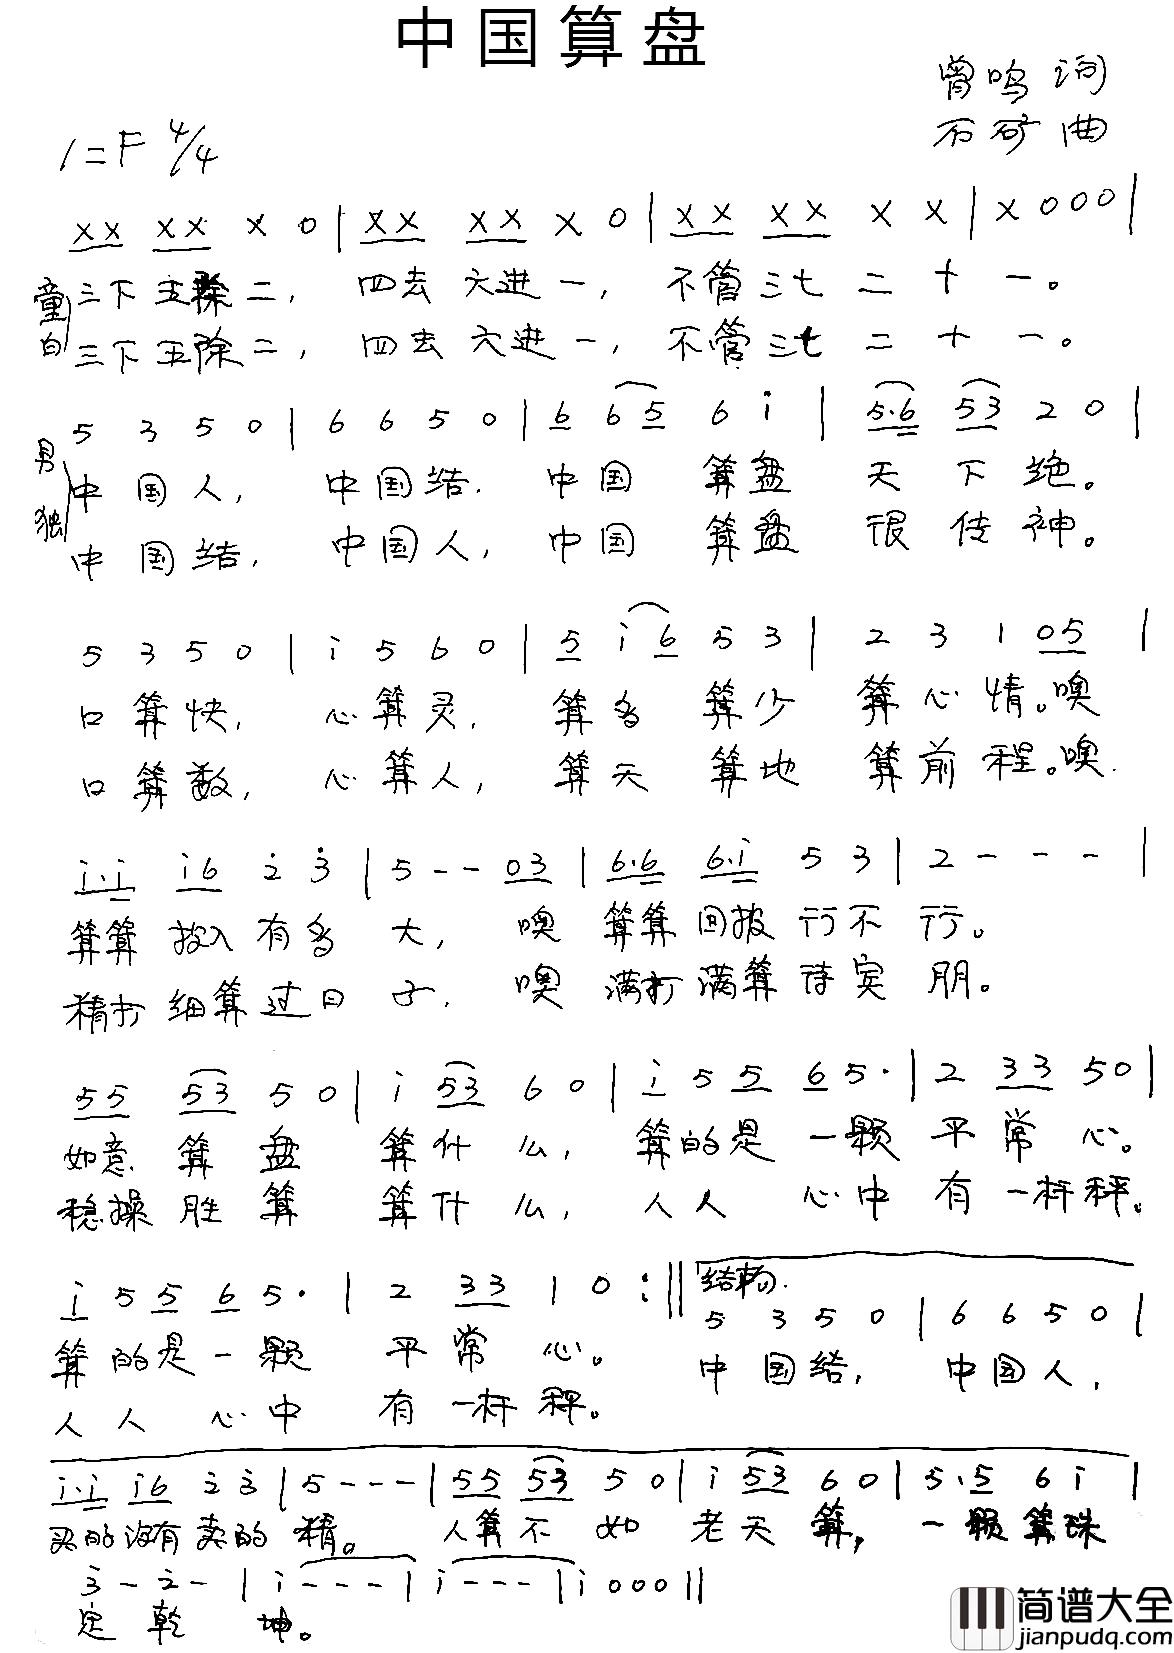 中国算盘
曾鸣 词
石矿 曲
1=F 4/4
XX XX X 0 | XX XX X 0 | XX XX X X | X 0 0 0 |
童白
三下五除二， 四去六进一， 不管三七二十一。
三下五除二， 四去六进一， 不管三七二十一。
5 3 5 0 | 6 6 5 0 | 6 6 5 6 i | 5·6 53 2 0 |
男独
中国人， 中国结． 中国 算盘 天下绝。
中国结， 中国人， 中国 算盘 很传神。
5 3 5 0 | i 5 6 0 | 5 i 6 5 3 | 2 3 1 05 |
口算快， 心算灵， 算多 算少 算心情。噢
口算数， 心算人， 算天 算地 算前程。噢．
i·i i6 2̇ 3̇ | 5 - - 03 | 6·6 6·i 5 3 | 2 - - - |
算算 投入有多 大， 噢 算算回报行不行。
精打 细算过日 子， 噢 满打满算待宾朋。
55 53 5 0 | i 53 6 0 | i 5 5 6 5· | 2 33 5 0 |
如意 算 盘 算什 么， 算的是 一颗 平常 心。
稳操 胜 算 算什 么， 人人 心中 有一杆秤。
i 5 5 6 5· | 2 33 1 0 :|| 结束句． 5 3 5 0 | 6 6 5 0 |
算的是一颗 平常 心。 中国结， 中国人，
人人 心中 有一杆秤。
i·i i6 2̇ 3̇ | 5 - - - | 55 53 5 0 | i 53 6 0 | 5·5 6 i |
买的没有卖的 精。 人算不 如 老天算， 一颗算珠
3̇ - 2̇ - | i - - - | i - - - | i 0 0 0 ||
定 乾 坤。
简谱大全
jianpudq.com